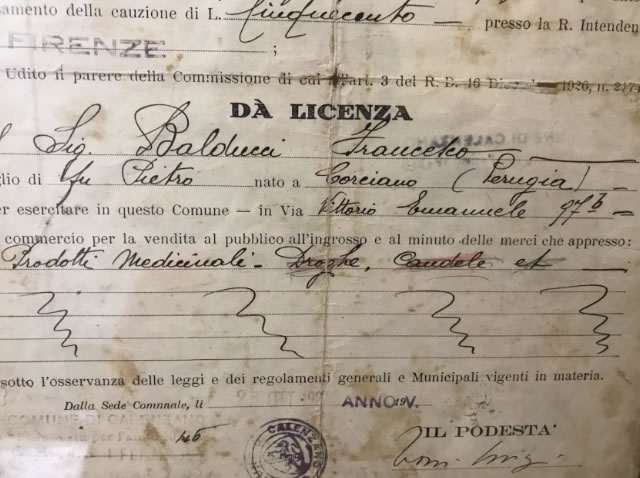 samento della cauzione di L. Cinquecento — presso la R. Intenden
FIRENZE ;
Udito il parere della Commissione di cui all'art. 3 del R. D. 16 Dicembre 1926, n. 2174
DÀ LICENZA
l Sig. Balducci Francesco
glio di fu Pietro nato a Corciano (Perugia) —
er esercitare in questo Comune — in Via Vittorio Emanuele 97 b —
commercio per la vendita al pubblico all'ingrosso e al minuto delle merci che appresso:
Prodotti Medicinali - Droghe, Candele et —
sotto l'osservanza delle leggi e dei regolamenti generali e Municipali vigenti in materia.
Dalla Sede Comunale, li ANNO V.
COMUNE DI
46
CALENZANO
IL PODESTA'